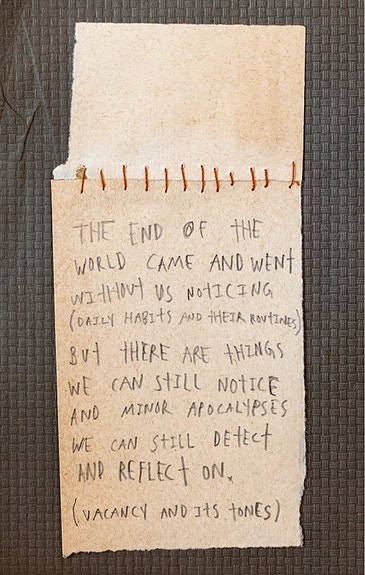 THE END OF THE
WORLD CAME AND WENT
WITHOUT US NOTICING
(DAILY HABITS AND THEIR ROUTINES)
BUT THERE ARE THINGS
WE CAN STILL NOTICE
AND MINOR APOCALYPSES
WE CAN STILL DETECT
AND REFLECT ON.
(VACANCY AND ITS TONES)